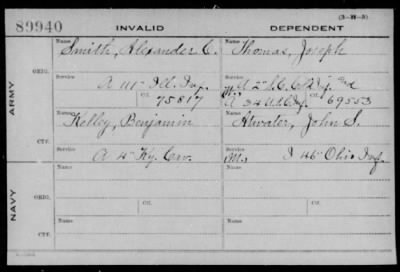 (3-1
89940
INVALID
DEPENDENT
ARMY
NAVY
ORIG.
CTF.
ORIG.
CTF.
Name
Smith, Alexander C.
Service
A 111" Ill. Inf.
Ctf.
75817
Name
Kelley, Benjamin
Service
A 4" Ky. Cav.
Ctf.
Name
Service
Ctf.
Name
Name
Thomas, Joseph
Service
A 2"
A 34
Ctf.
69553
Name
Atwater, John S.
Service
I 45" Ohio Inf.
Ctf.
Name
Service
Ctf.
Name